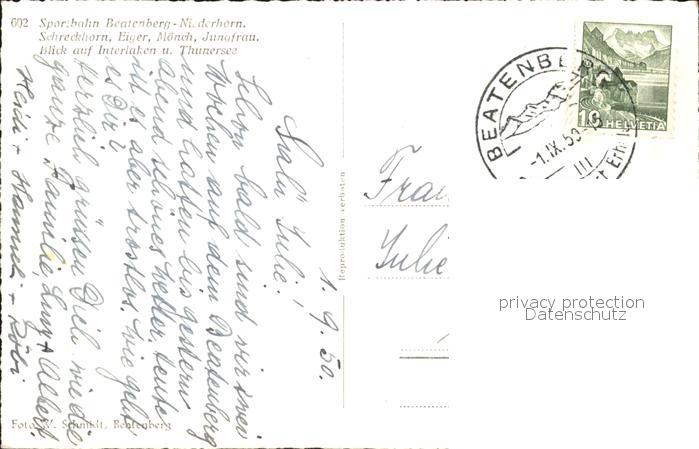 602 Sportbahn Beatenberg-Niederhorn.
Schreckhorn, Eiger, Mönch, Jungfrau.
Blick auf Interlaken u. Thunersee
1. 9. 50.
Salü Julie!
Schon bald sind wir zwei
Wochen auf dem Beatenberg
und hatten bis gestern
abend schönes Wetter, heute
ist es aber trostlos. Wie geht
es Dir?
Herzlich grüssen Dich wie die
ganze Familie, Luny + Albert
Heidi + Hanneli + Röbi
Reproduktion verboten
Frau
Julie
BEATENBERG
-1.IX.50
III
10 HELVETIA
privacy protection
Datenschutz
Foto W. Schmidt, Beatenberg